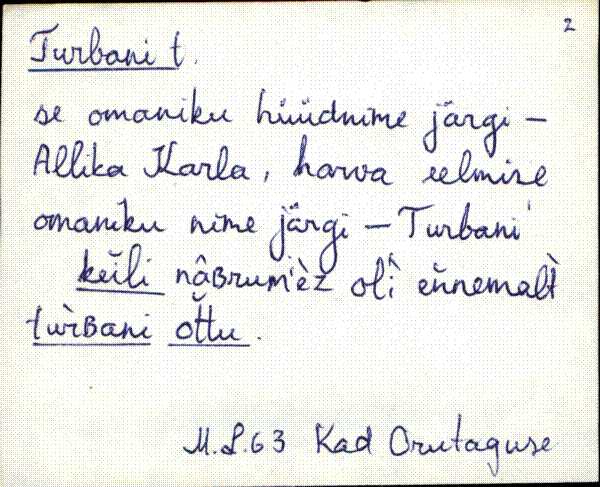 2
Turbani t.
se omaniku hüüdnime järgi –
Allika Karla, harva eelmise
omaniku nime järgi – Turbani
keĭli nâʙrum'èz ol'ì eňnemalt̀
tùrʙani ot̆tu.
M.S.63 Kad Orutaguse